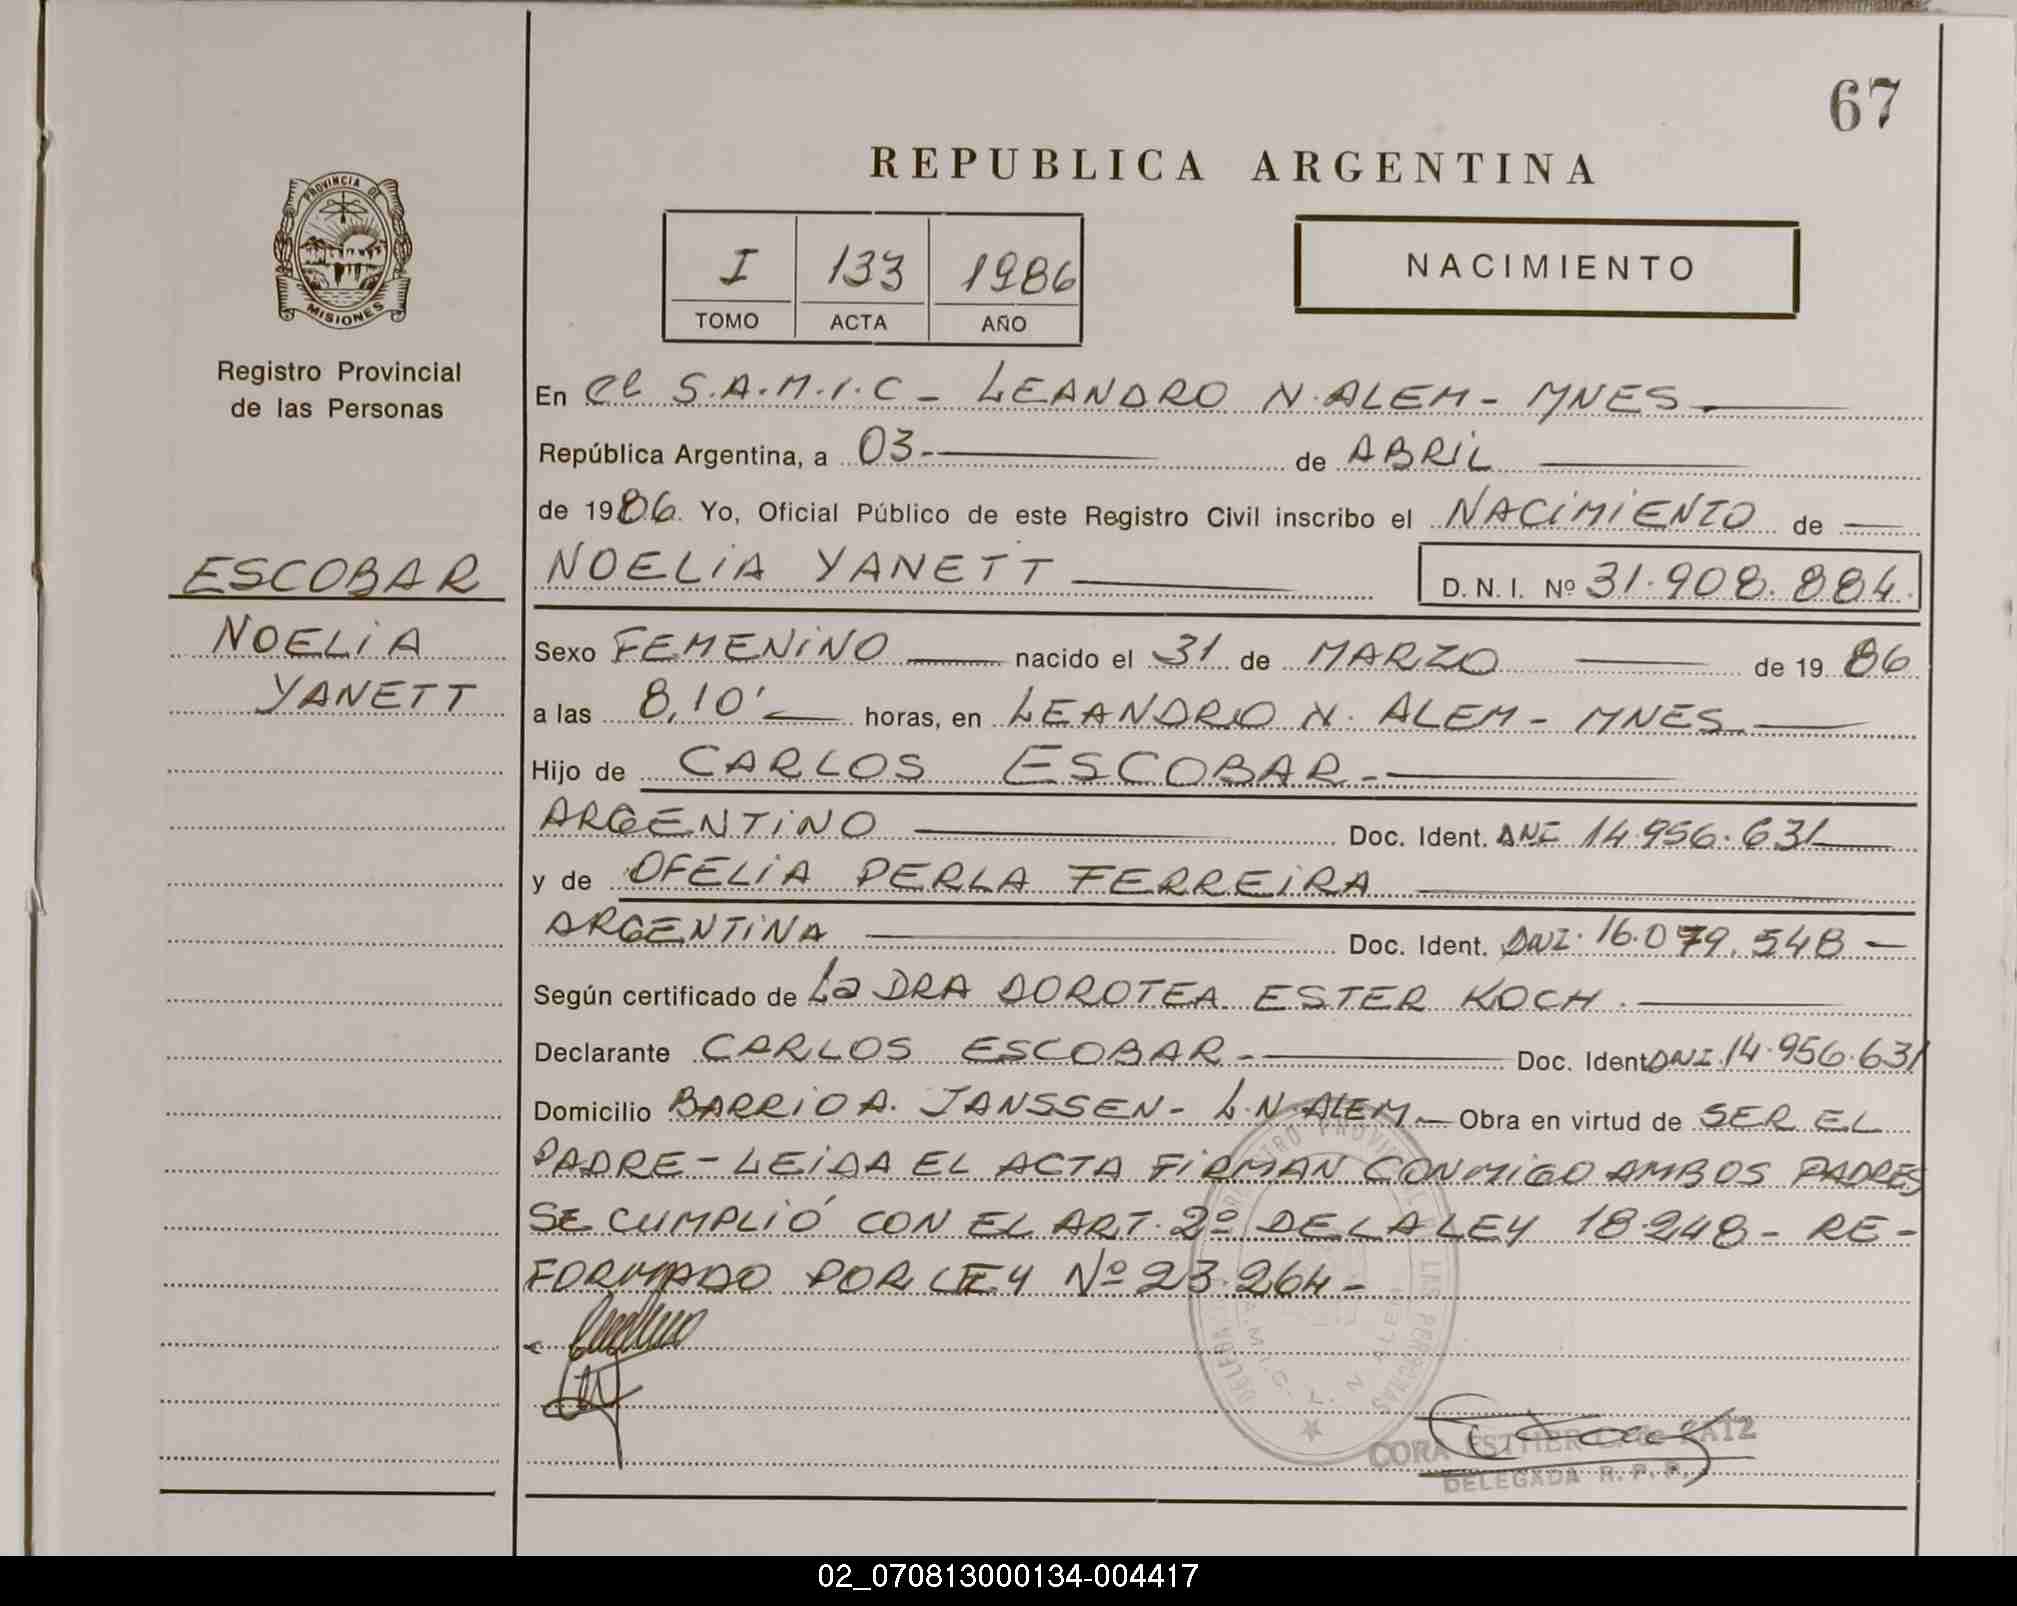 67
REPUBLICA ARGENTINA
PROVINCIA DE
MISIONES
I 133 1986
TOMO ACTA AÑO
NACIMIENTO
Registro Provincial
de las Personas
ESCOBAR
NOELIA
YANETT
En el S.A.M.I.C - LEANDRO N. ALEM - MNES
República Argentina, a 03.- de ABRIL
de 1986. Yo, Oficial Público de este Registro Civil inscribo el NACIMIENTO de
NOELIA YANETT D.N.I. Nº 31.908.884.
Sexo FEMENINO nacido el 31 de MARZO de 19 86
a las 8,10' horas, en LEANDRO N. ALEM - MNES
Hijo de CARLOS ESCOBAR.-
ARGENTINO Doc. Ident. DNI 14.956.631
y de OFELIA PERLA FERREIRA
ARGENTINA Doc. Ident. DNI. 16.079.548 -
Según certificado de La DRA DOROTEA ESTER KOCH.
Declarante CARLOS ESCOBAR.- Doc. Ident. DNI. 14.956.631
Domicilio BARRIO A. JANSSEN - L.N. ALEM.- Obra en virtud de SER EL
PADRE - LEIDA EL ACTA FIRMAN CONMIGO AMBOS PADRES
SE CUMPLIÓ CON EL ART. 2º DE LA LEY 18.248 - RE-
FORMADO POR LEY Nº 23.264 -
CORA ESTHER
DELEGADA R. P. P.
02_070813000134-004417